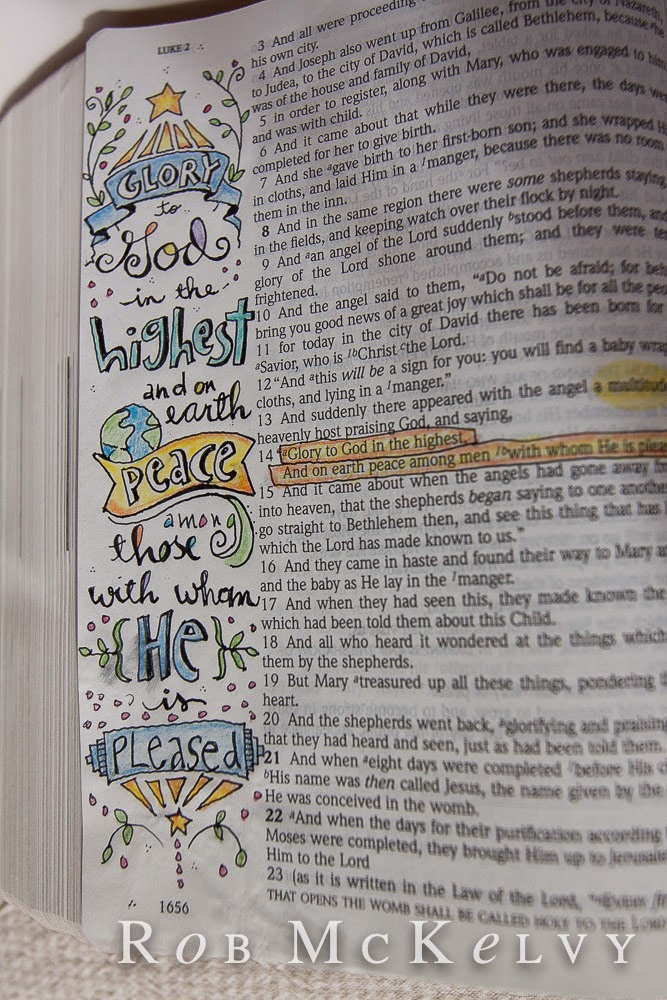 LUKE 2
GLORY
to
God
in the
highest
and on
earth
peace
among
those
with whom
{He}
is
PLEASED
1656
3 And all were proceeding
his own city.
4 And Joseph also went up from Galilee, from the city of Nazareth,
to Judea, to the city of David, which is called Bethlehem, because he
was of the house and family of David,
5 in order to register, along with Mary, who was engaged to him
and was with child.
6 And it came about that while they were there, the days were
completed for her to give birth.
7 And she ᵃgave birth to her first-born son; and she wrapped H
in cloths, and laid Him in a ˡmanger, because there was no room
them in the inn.
8 And in the same region there were some shepherds staying
in the fields, and keeping watch over their flock by night.
9 And ᵃan angel of the Lord suddenly ᵇstood before them, and
glory of the Lord shone around them; and they were te
frightened.
10 And the angel said to them, "ᵃDo not be afraid; for beh
bring you good news of a great joy which shall be for all the peo
11 for today in the city of David there has been born for
ᵃSavior, who is ˡᵇChrist ᶜthe Lord.
12 "And ᵃthis will be a sign for you: you will find a baby wrap
cloths, and lying in a ˡmanger."
13 And suddenly there appeared with the angel a multitude
heavenly host praising God, and saying,
14 "ᵃGlory to God in the highest,
And on earth peace among men ˡᵇwith whom He is plea
15 And it came about when the angels had gone away f
into heaven, that the shepherds began saying to one another
go straight to Bethlehem then, and see this thing that has
which the Lord has made known to us."
16 And they came in haste and found their way to Mary an
and the baby as He lay in the ˡmanger.
17 And when they had seen this, they made known the
which had been told them about this Child.
18 And all who heard it wondered at the things which
them by the shepherds.
19 But Mary ᵃtreasured up all these things, pondering
heart.
20 And the shepherds went back, ᵃglorifying and praising
that they had heard and seen, just as had been told them.
21 And when ᵃeight days were completed before His c
ᵇHis name was then called Jesus, the name given by the
He was conceived in the womb.
22 ᵃAnd when the days for their purification according
Moses were completed, they brought Him up to Jerusale
Him to the Lord
23 (as it is written in the Law of the Lord,
THAT OPENS THE WOMB SHALL BE CALLED HOLY TO THE LORD
ROB MCKELVY